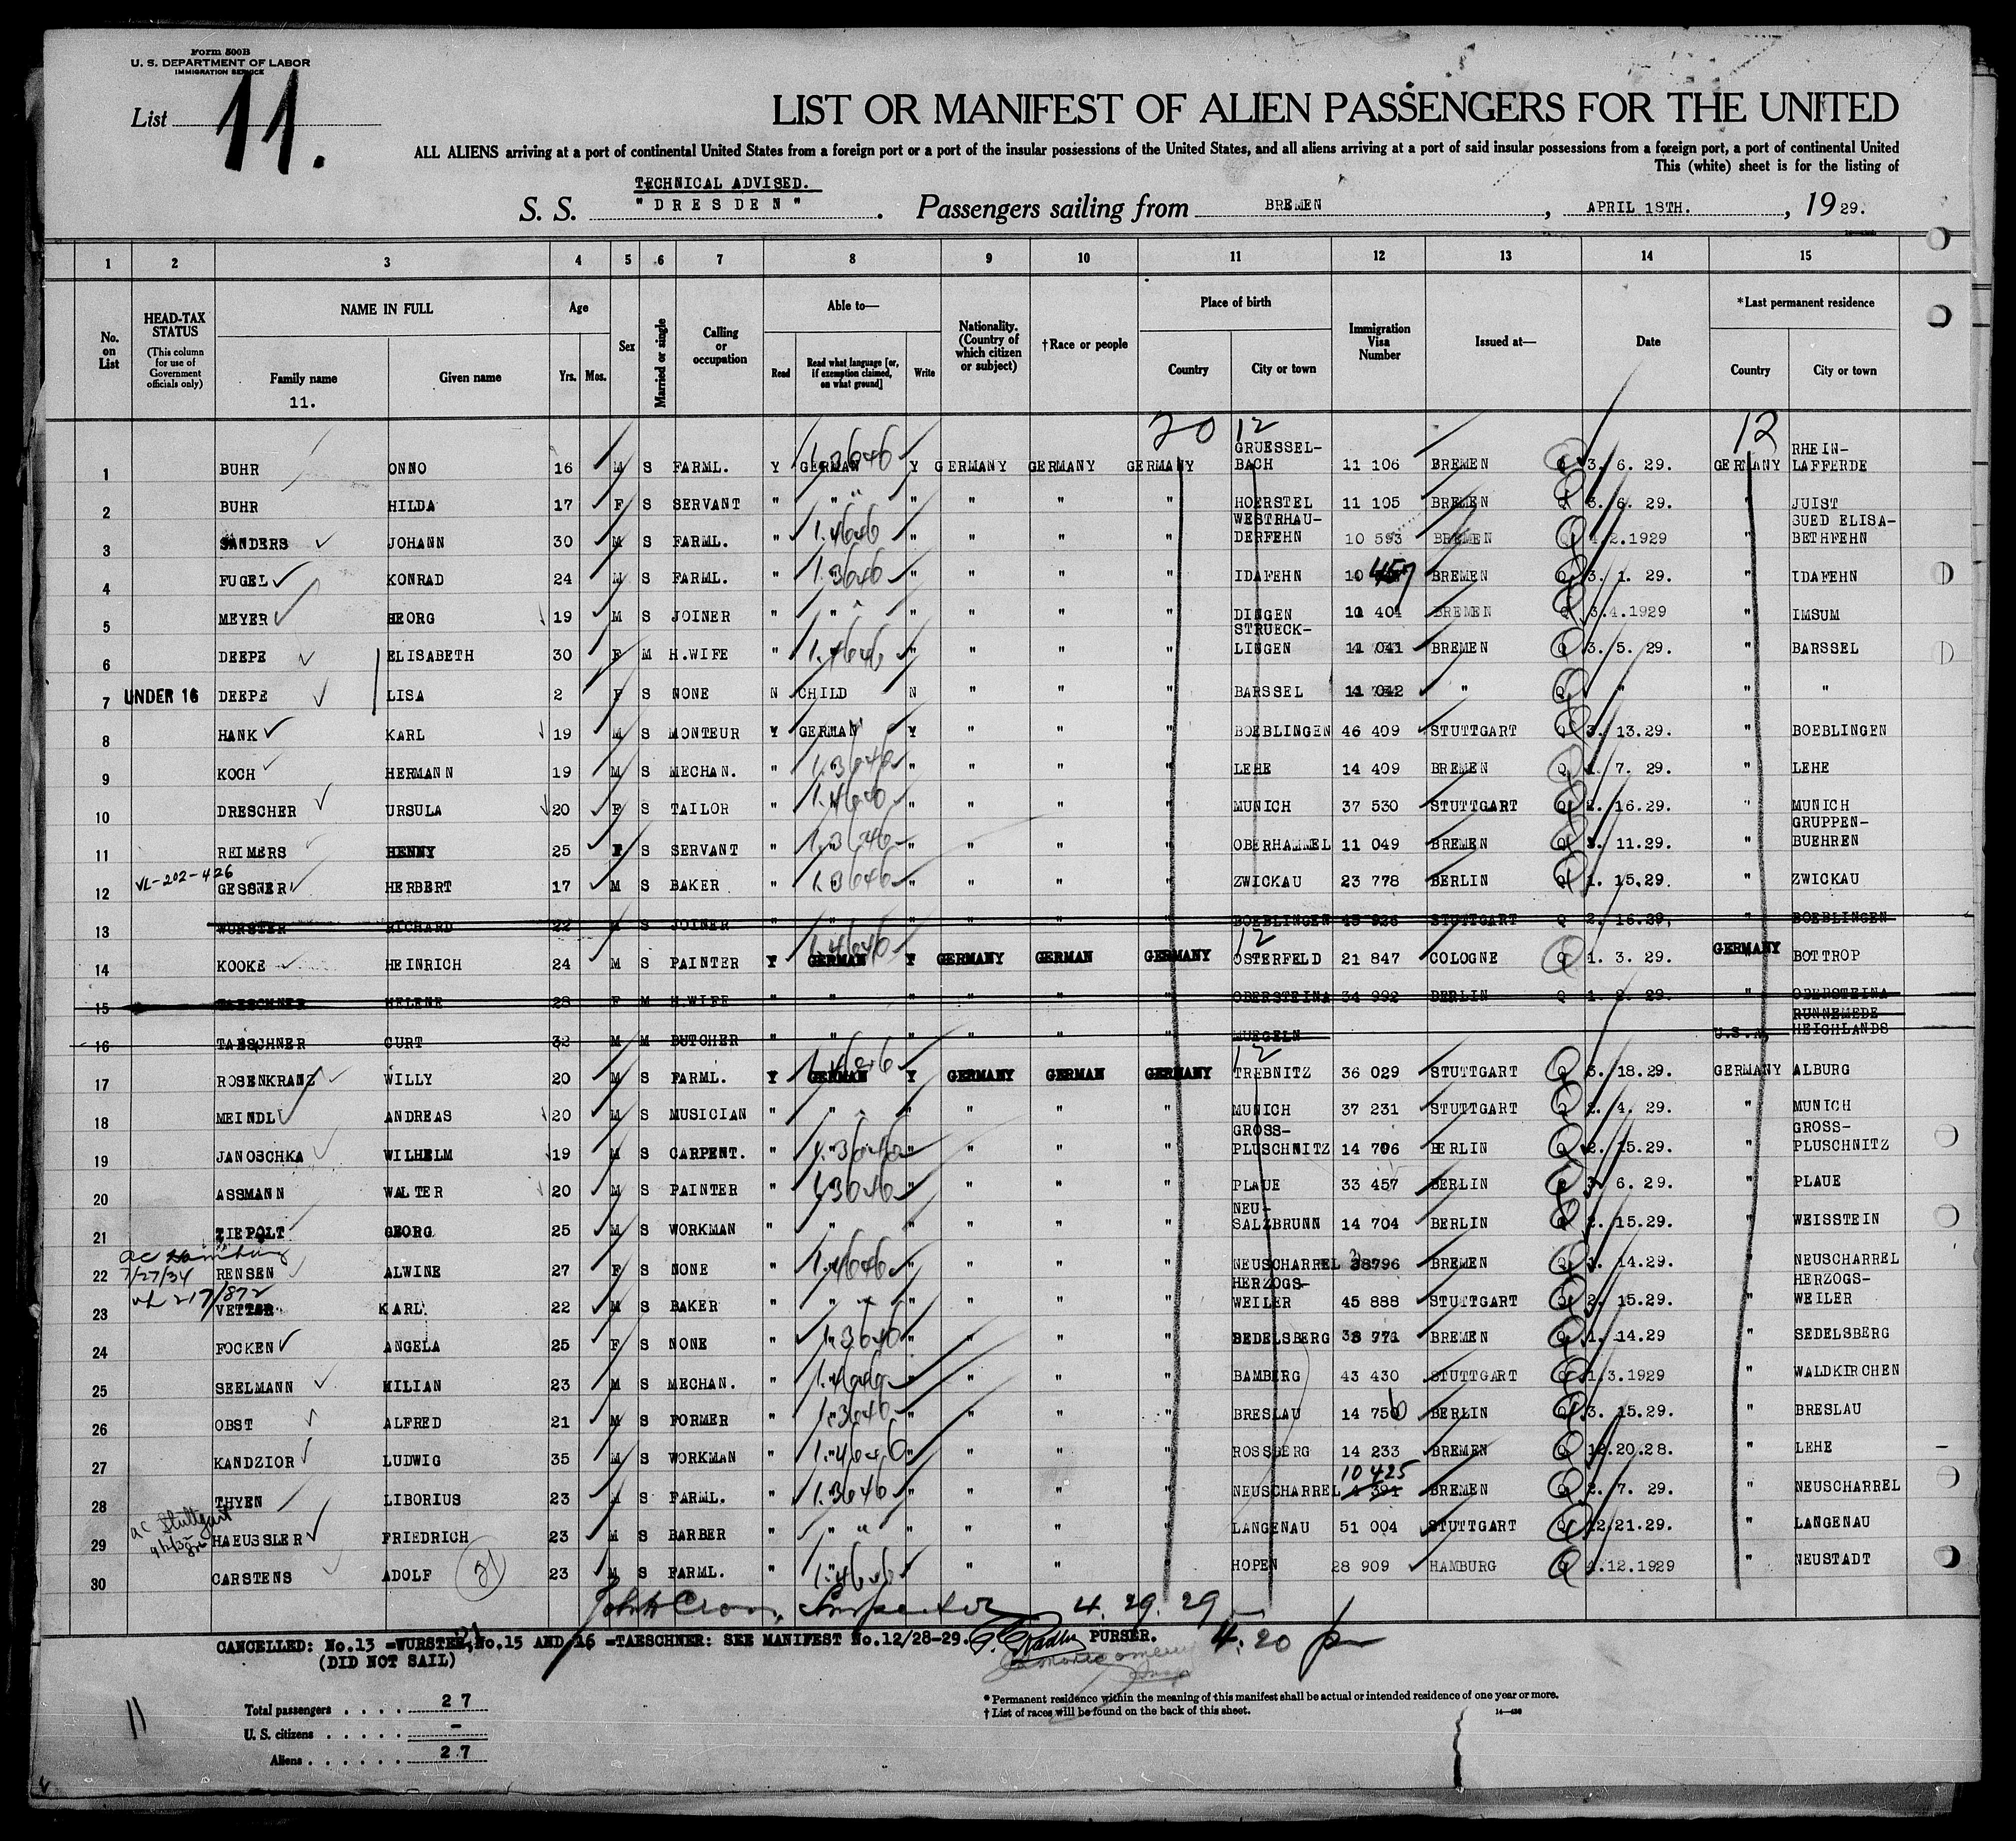 Form 500B
U. S. DEPARTMENT OF LABOR
IMMIGRATION SERVICE
List 11.
LIST OR MANIFEST OF ALIEN PASSENGERS FOR THE UNITED
ALL ALIENS arriving at a port of continental United States from a foreign port or a port of the insular possessions of the United States, and all aliens arriving at a port of said insular possessions from a foreign port, a port of continental United
This (white) sheet is for the listing of
TECHNICAL ADVISED.
S. S. "DRESDEN". Passengers sailing from BREMEN, APRIL 18TH., 1929.
1 2 3 4 5 6 7 8 9 10 11 12 13 14 15
No. on List
HEAD-TAX STATUS
(This column for use of Government officials only)
NAME IN FULL
Family name
11.
Given name
Age
Yrs. Mos.
Sex
Married or single
Calling or occupation
Able to—
Read
Read what language [or, if exemption claimed, on what ground]
Write
Nationality. (Country of which citizen or subject)
†Race or people
Place of birth
Country
City or town
Immigration Visa Number
Issued at—
Date
*Last permanent residence
Country
City or town
20 12 12
1 BUHR ONNO 16 M S FARML. Y GERMAN Y GERMANY GERMANY GERMANY GRUESSEL-BACH 11 106 BREMEN Q 3. 6. 29. GERMANY RHEIN-LAFFERDE
2 BUHR HILDA 17 F S SERVANT " " " " " " HOERSTEL 11 105 BREMEN Q 3. 6. 29. " JUIST
3 SANDERS JOHANN 30 M S FARML. " " " " " WESTRHAU-DERFEHN 10 593 BREMEN Q 2.1929 " SUED ELISA-BETHFEHN
4 FUGEL KONRAD 24 M S FARML. " " " " " IDAFEHN 10 457 BREMEN Q 3. 1. 29. " IDAFEHN
5 MEYER HEORG 19 M S JOINER " " " " " " DINGEN 11 401 BREMEN Q 3.4.1929 " IMSUM
6 DEEPE ELISABETH 30 F M H.WIFE " " " " " STRUECK-LINGEN 11 041 BREMEN Q 3. 5. 29. " BARSSEL
7 UNDER 16 DEEPE LISA 2 F S NONE N CHILD N " " " BARSSEL 11 042 " Q " " "
8 HANK KARL 19 M S MONTEUR Y GERMAN Y " " " BOEBLINGEN 46 409 STUTTGART Q 3. 13.29. " BOEBLINGEN
9 KOCH HERMANN 19 M S MECHAN. " " " " " LEHE 14 409 BREMEN Q 1. 7. 29. " LEHE
10 DRESCHER URSULA 20 F S TAILOR " " " " " MUNICH 37 530 STUTTGART Q 2. 16.29. " MUNICH
11 REIMERS HENNY 25 F S SERVANT " " " " " OBERHAMMEL 11 049 BREMEN Q 11.29. " GRUPPEN-BUEHREN
VL-202-426
12 GESSNER HERBERT 17 M S BAKER " " " " " ZWICKAU 23 778 BERLIN Q 1. 15.29. " ZWICKAU
13 WURSTER RICHARD 22 M S JOINER " " " " " " BOEBLINGEN 45 926 STUTTGART Q 2. 16.29. " BOEBLINGEN
12
14 KOOKE HEINRICH 24 M S PAINTER Y GERMAN Y GERMANY GERMAN GERMANY OSTERFELD 21 847 COLOGNE Q 1. 3. 29. GERMANY BOTTROP
15 TAESCHNER HELENE 28 F M H.WIFE " " " " " " OBERSTEINA 34 992 BERLIN Q 1. 8. 29. " OBERSTEINA
16 TAESCHNER CURT 32 M M BUTCHER " " " " " " MUEGELN U.S.A, RUNNEMEDE HEIGHLANDS
12
17 ROSENKRANZ WILLY 20 M S FARML. Y GERMAN Y GERMANY GERMAN GERMANY TREBNITZ 36 029 STUTTGART Q 3. 18.29. GERMANY ALBURG
18 MEINDL ANDREAS 20 M S MUSICIAN " " " " " " MUNICH 37 231 STUTTGART Q 2. 4. 29. " MUNICH
19 JANOSCHKA WILHELM 19 M S CARPENT. " " " " " GROSS-PLUSCHNITZ 14 706 BERLIN Q 2. 15.29. " GROSS-PLUSCHNITZ
20 ASSMANN WALTER 20 M S PAINTER " " " " " PLAUE 33 457 BERLIN Q 3. 6. 29. " PLAUE
21 ZIEPOLT GEORG 25 M S WORKMAN " " " " " " NEU-SALZBRUNN 14 704 BERLIN Q 2. 15.29. " WEISSTEIN
7/27/34
22 RENSEN ALWINE 27 F S NONE " " " " " NEUSCHARREL 38796 BREMEN Q 1. 14.29. " NEUSCHARREL
217/872
23 VETTER KARL 22 M S BAKER " " " " " " HERZOGS-WEILER 45 888 STUTTGART Q 2. 15.29. " HERZOGS-WEILER
24 FOCKEN ANGELA 25 F S NONE " " " " " SEDELSBERG 38 771 BREMEN Q 1. 14.29 " SEDELSBERG
25 SEELMANN MILIAN 23 M S MECHAN. " " " " " BAMBERG 43 430 STUTTGART Q 1.3.1929 " WALDKIRCHEN
26 OBST ALFRED 21 M S FORMER " " " " " BRESLAU 14 750 BERLIN Q 3. 15.29. " BRESLAU
27 KANDZIOR LUDWIG 35 M S WORKMAN " " " " " ROSSBERG 14 233 BREMEN Q 12.20.28. " LEHE
10 425
28 THYEN LIBORIUS 23 M S FARML. " " " " " NEUSCHARREL 4 391 BREMEN Q 2. 7. 29. " NEUSCHARREL
ac Stuttgart
29 HAEUSSLER FRIEDRICH 23 M S BARBER " " " " " " LANGENAU 51 004 STUTTGART Q 12.21.29. " LANGENAU
30 CARSTENS ADOLF 23 M S FARML. " " " " HOPEN 28 909 HAMBURG Q 4.12.1929 " NEUSTADT
Inspector 4. 29. 29
CANCELLED: No.13 =WURSTER, No.15 AND 16 =TAESCHNER: SEE MANIFEST No.12/28-29. PURSER. 4.20 pm
(DID NOT SAIL)
11
Total passengers . . . . 27
U. S. citizens . . . . . -
Aliens . . . . . . 27
* Permanent residence within the meaning of this manifest shall be actual or intended residence of one year or more.
† List of races will be found on the back of this sheet.